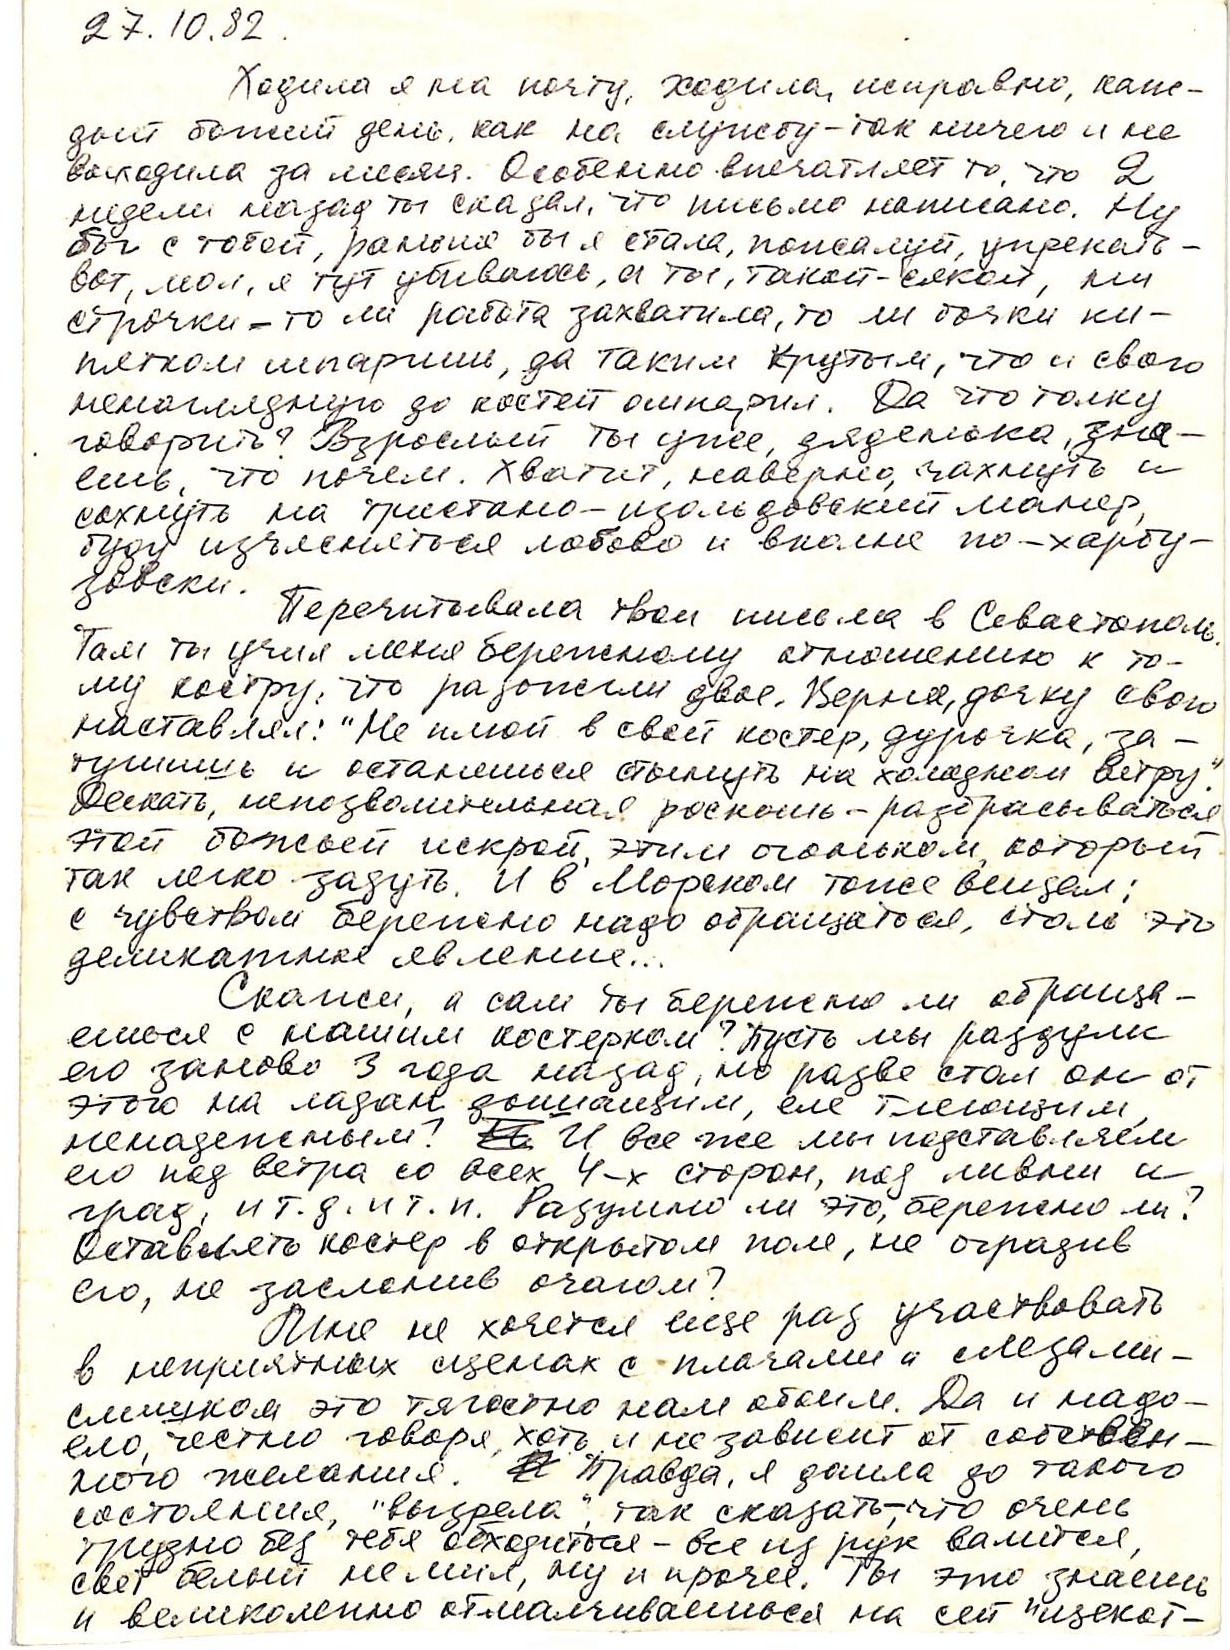 27.10.82.
Ходила я на почту, ходила, исправно, каж-
дый божий день, как на службу - так ничего и не
выходила за месяц. Особенно впечатляет то, что 2
недели назад ты сказал, что письмо написано. Ну
бог с тобой, раньше бы я стала, пожалуй, упрекать -
вот, мол, я тут убиваюсь, а ты, такой-сякой, ни
строчки - то ли работа захватила, то ли бочки ки-
пятком шпаришь, да таким крутым, что и свою
ненаглядную до костей ошпарил. Да что толку
говорить? Взрослый ты уже, дяденька, зна-
ешь, что почем. Хватит, наверно, чахнуть и
сохнуть на тристано-изольдовский манер,
буду изъясняться лобово и вполне по-харбу-
зовски.
Перечитывала твои письма в Севастополь.
Там ты учил меня бережному отношению к то-
му костру, что разожгли двое. Верно, дочку свою
наставлял: "Не плюй в свой костер, дурочка, за-
тушишь и останешься стынуть на холодном ветру."
Дескать, непозволительная роскошь - разбрасываться
этой божьей искрой, этим огоньком, который
так легко задуть. И в Морском тоже вещал:
с чувством бережно надо обращаться, столь это
деликатное явление...
Скажи, а сам ты бережно ли обраща-
ешься с нашим костерком? Пусть мы раздули
его заново 3 года назад, но разве стал он от
этого на ладан дышащим, еле тлеющим,
ненадежным? И все же мы подставляем
его под ветра со всех 4-х сторон, под ливни и
град, и т.д. и т.п. Разумно ли это, бережно ли?
Оставлять костер в открытом поле, не оградив
его, не заслонив очагом?
Мне не хочется еще раз участвовать
в неприятных сценах с плачами и слезами -
слишком это тягостно нам обоим. Да и надо-
ело, честно говоря, хоть и не зависит от собствен-
ного желания. Правда, я дошла до такого
состояния, "вызрела", так сказать, что очень
трудно без тебя обходиться - все из рук валится,
свет белый не мил, ну и прочее. Ты это знаешь
и великолепно отмалчиваешься на сей "щекот-